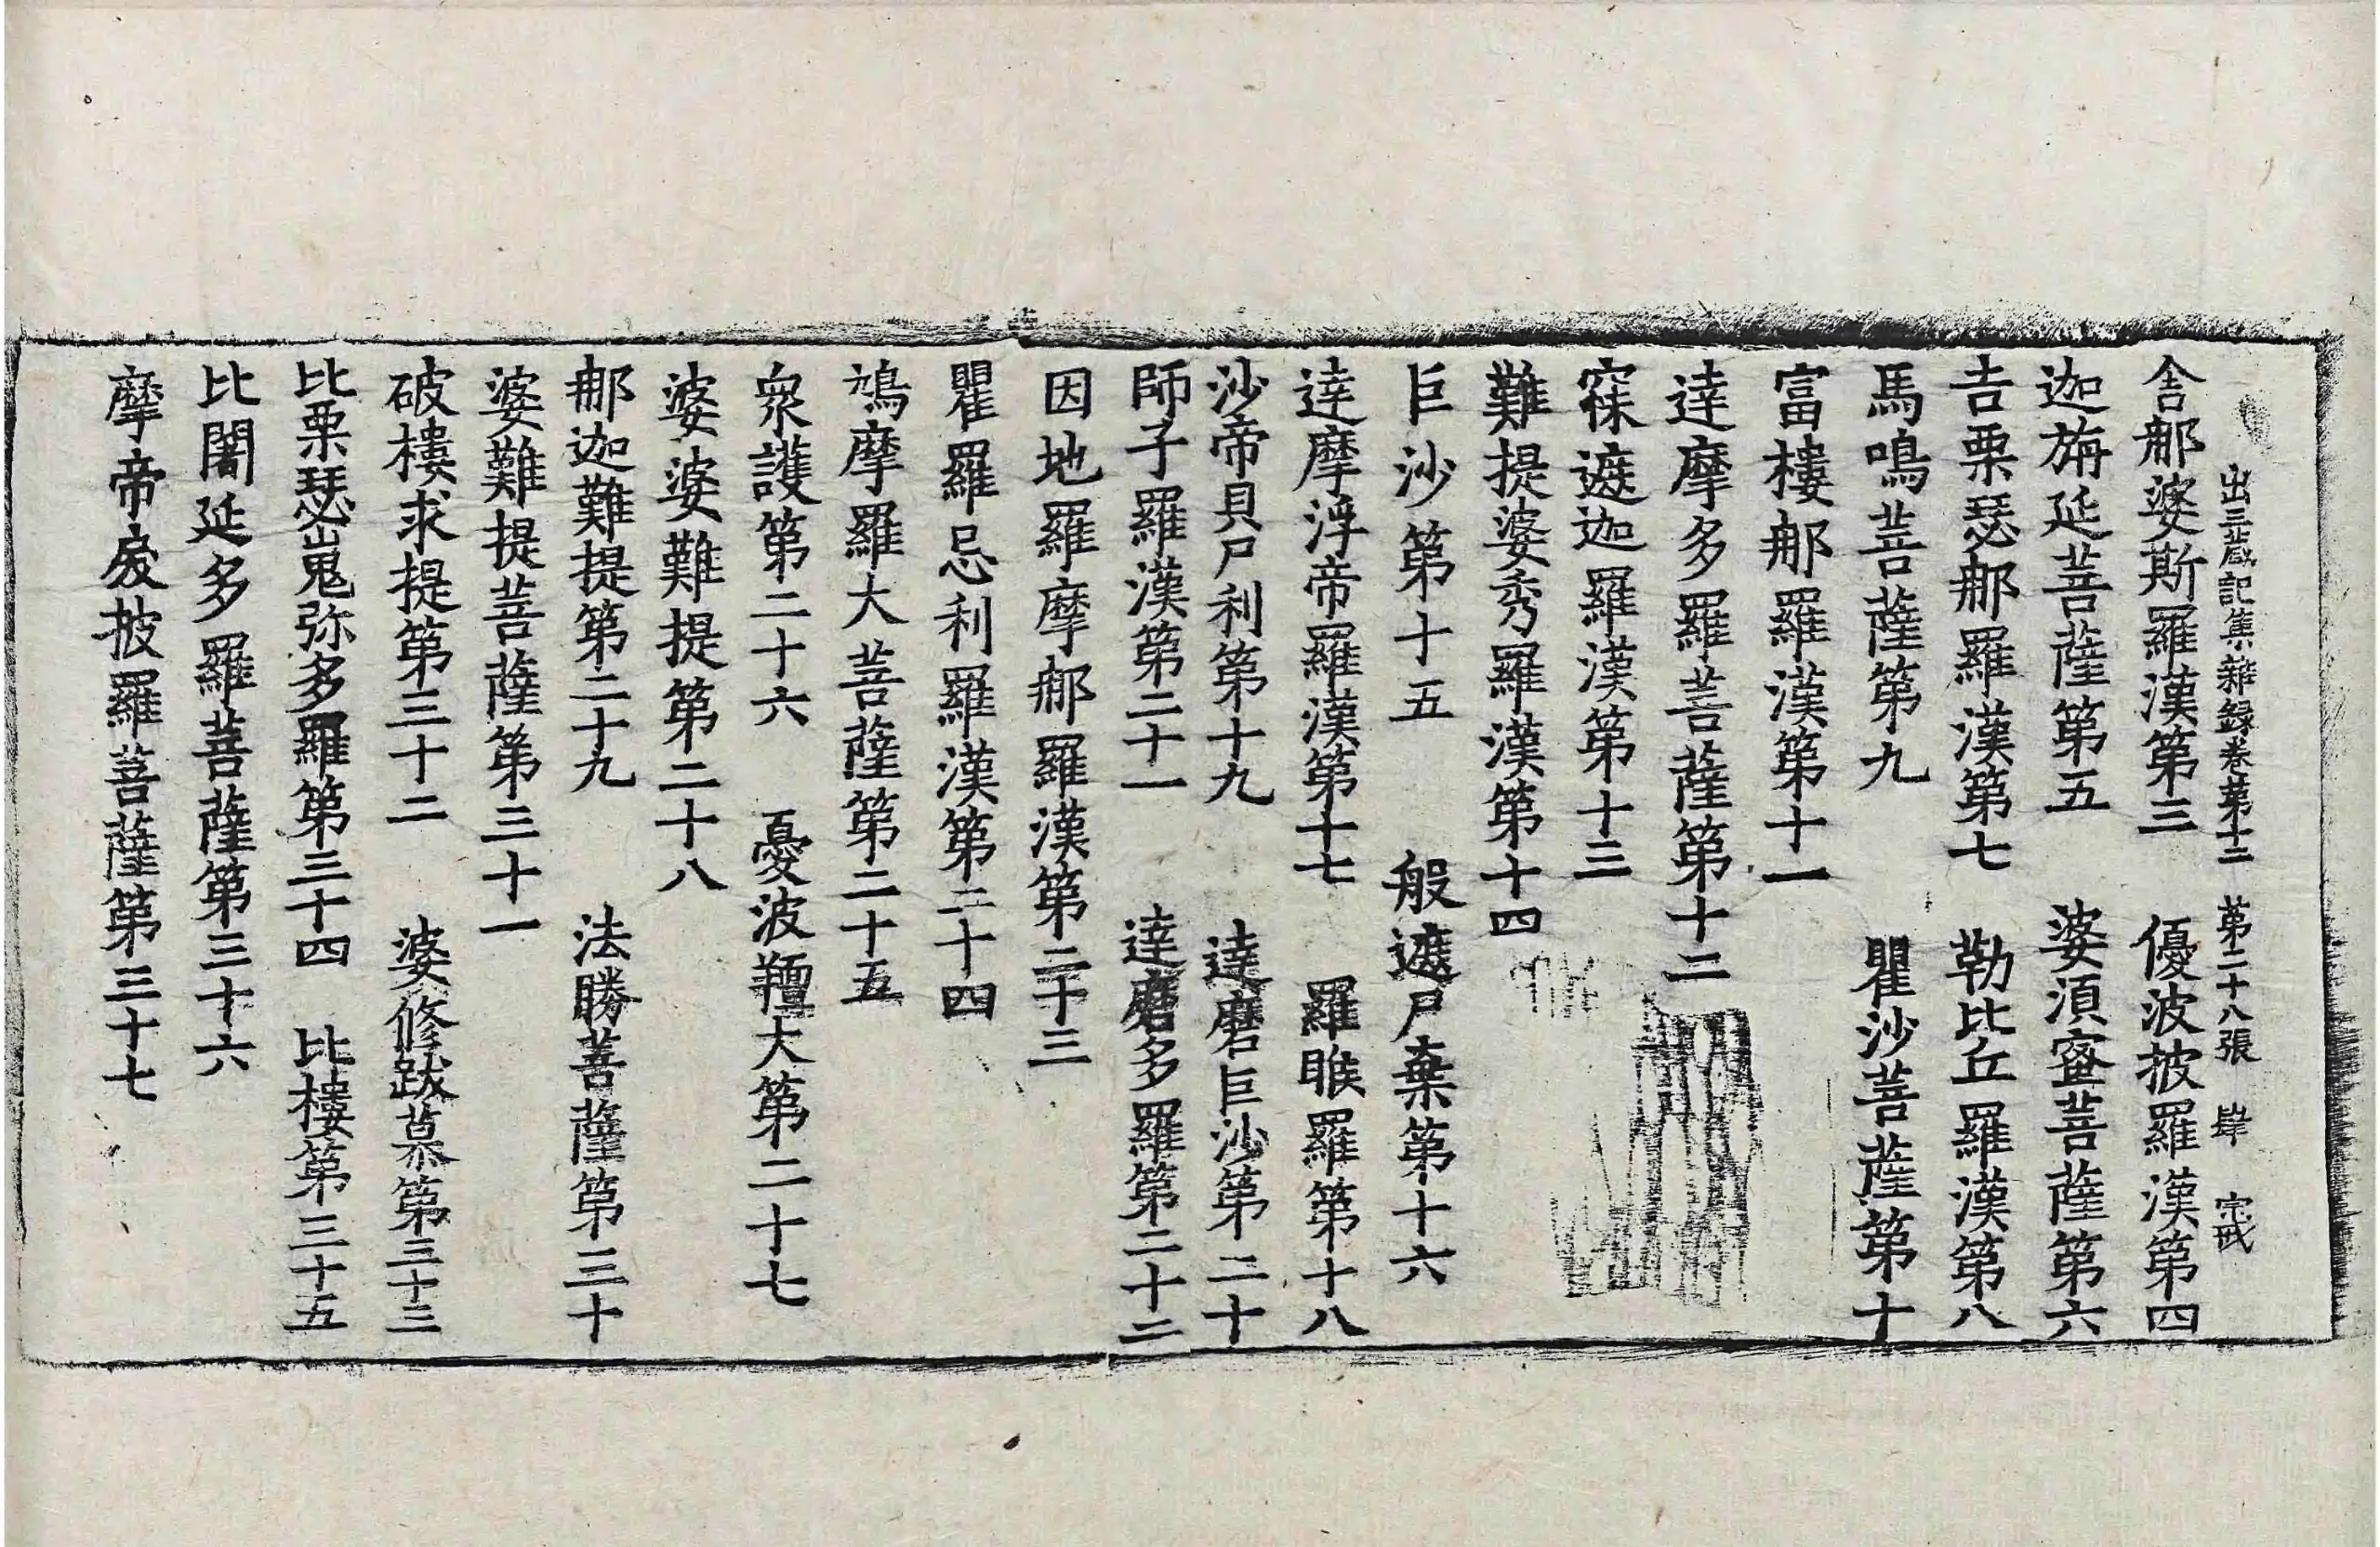 出三藏記集雜録卷第十二 第二十八張 肆 宗戒
舎那婆斯羅漢第三 優波掘羅漢第四
迦旃延菩薩第五 婆湏蜜菩薩第六
吉栗瑟那羅漢第七 勒比丘羅漢第八
馬鳴菩薩第九 瞿沙菩薩第十
富樓那羅漢第十一
達摩多羅菩薩第十二
寐遮迦羅漢第十三
難提婆秀羅漢第十四
巨沙第十五 般遮尸棄第十六
達摩浮帝羅漢第十七 羅睺羅第十八
沙帝貝尸利第十九 達磨巨沙第二十
師子羅漢第二十一 達磨多羅第二十二
因地羅摩那羅漢第二十三
瞿羅忌利羅漢第二十四
鳩摩羅大菩薩第二十五
衆護第二十六 憂波羶大第二十七
婆婆難提第二十八
那迦難提第二十九 法勝菩薩第三十
婆難提菩薩第三十一
破樓求提第三十二 婆修跋慕第三十三
比栗瑟嵬弥多羅第三十四 比樓第三十五
比闍延多羅菩薩第三十六
摩帝戾披羅菩薩第三十七